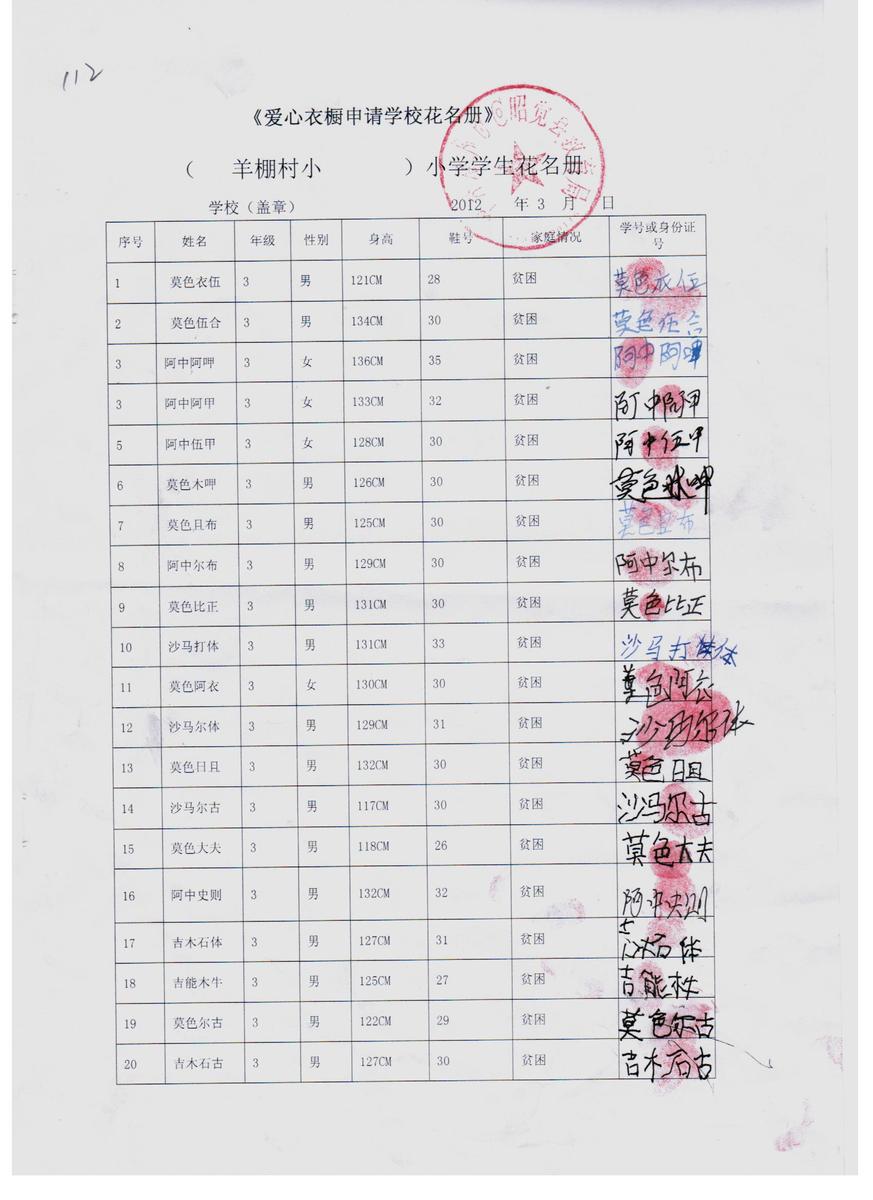 112
《爱心衣橱申请学校花名册》
（ 羊棚村小 ）小学学生花名册
学校（盖章） 2012 年 3 月 日
昭觉县教育局
序号 姓名 年级 性别 身高 鞋号 家庭情况 学号或身份证号
1 莫色衣伍 3 男 121CM 28 贫困 莫色衣伍
2 莫色伍合 3 男 134CM 30 贫困 莫色伍合
3 阿中阿呷 3 女 136CM 35 贫困 阿中阿呷
3 阿中阿甲 3 女 133CM 32 贫困 阿中阿甲
5 阿中伍甲 3 女 128CM 30 贫困 阿中伍甲
6 莫色木呷 3 男 126CM 30 贫困 莫色木呷
7 莫色且布 3 男 125CM 30 贫困 莫色且布
8 阿中尔布 3 男 129CM 30 贫困 阿中尔布
9 莫色比正 3 男 131CM 30 贫困 莫色比正
10 沙马打体 3 男 131CM 33 贫困 沙马打体
11 莫色阿衣 3 女 130CM 30 贫困 莫色阿
12 沙马尔体 3 男 129CM 31 贫困 沙马尔体
13 莫色日且 3 男 132CM 30 贫困 莫色日且
14 沙马尔古 3 男 117CM 30 贫困 沙冯尔古
15 莫色大夫 3 男 118CM 26 贫困 莫色大夫
16 阿中史则 3 男 132CM 32 贫困 阿中史则
17 吉木石体 3 男 127CM 31 贫困 吉木石体
18 吉能木牛 3 男 125CM 27 贫困 吉能木牛
19 莫色尔古 3 男 122CM 29 贫困 莫色尔古
20 吉木石古 3 男 127CM 30 贫困 吉木石古